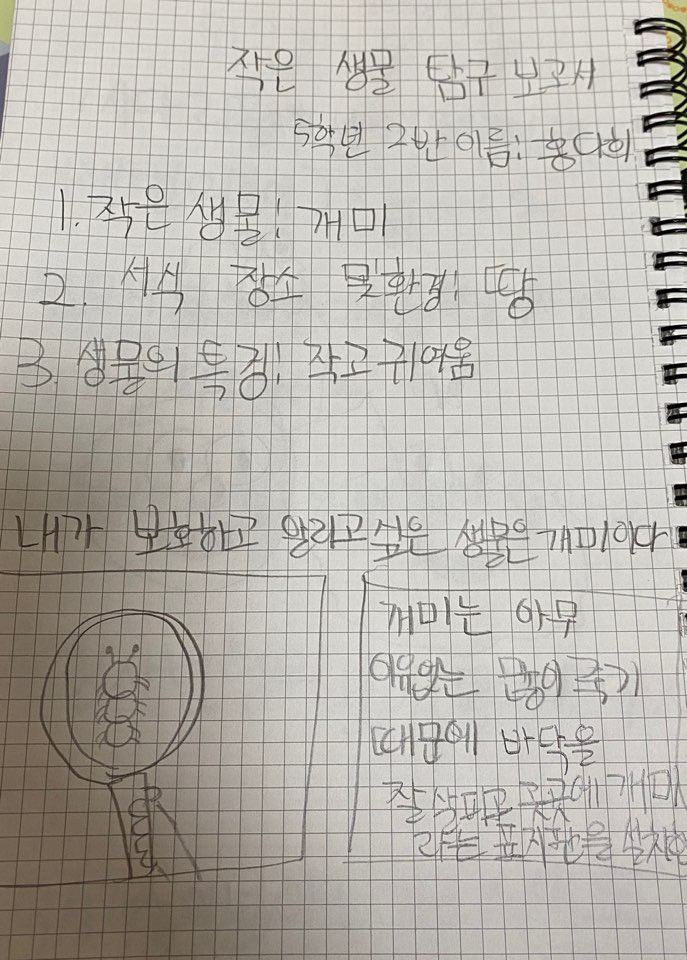 작은 생물 탐구 보고서
5학년 2반 이름: 홍다희
1. 작은 생물: 개미
2. 서식 장소 및 환경: 땅
3. 생물의 특징: 작고 귀여움
내가 보호하고 알리고 싶은 생물은 개미이다
개미는 아무
이유없는 많이 죽기
때문에 바닥을
잘 살피고 곳곳에 개미
라는 표지판을 설치한